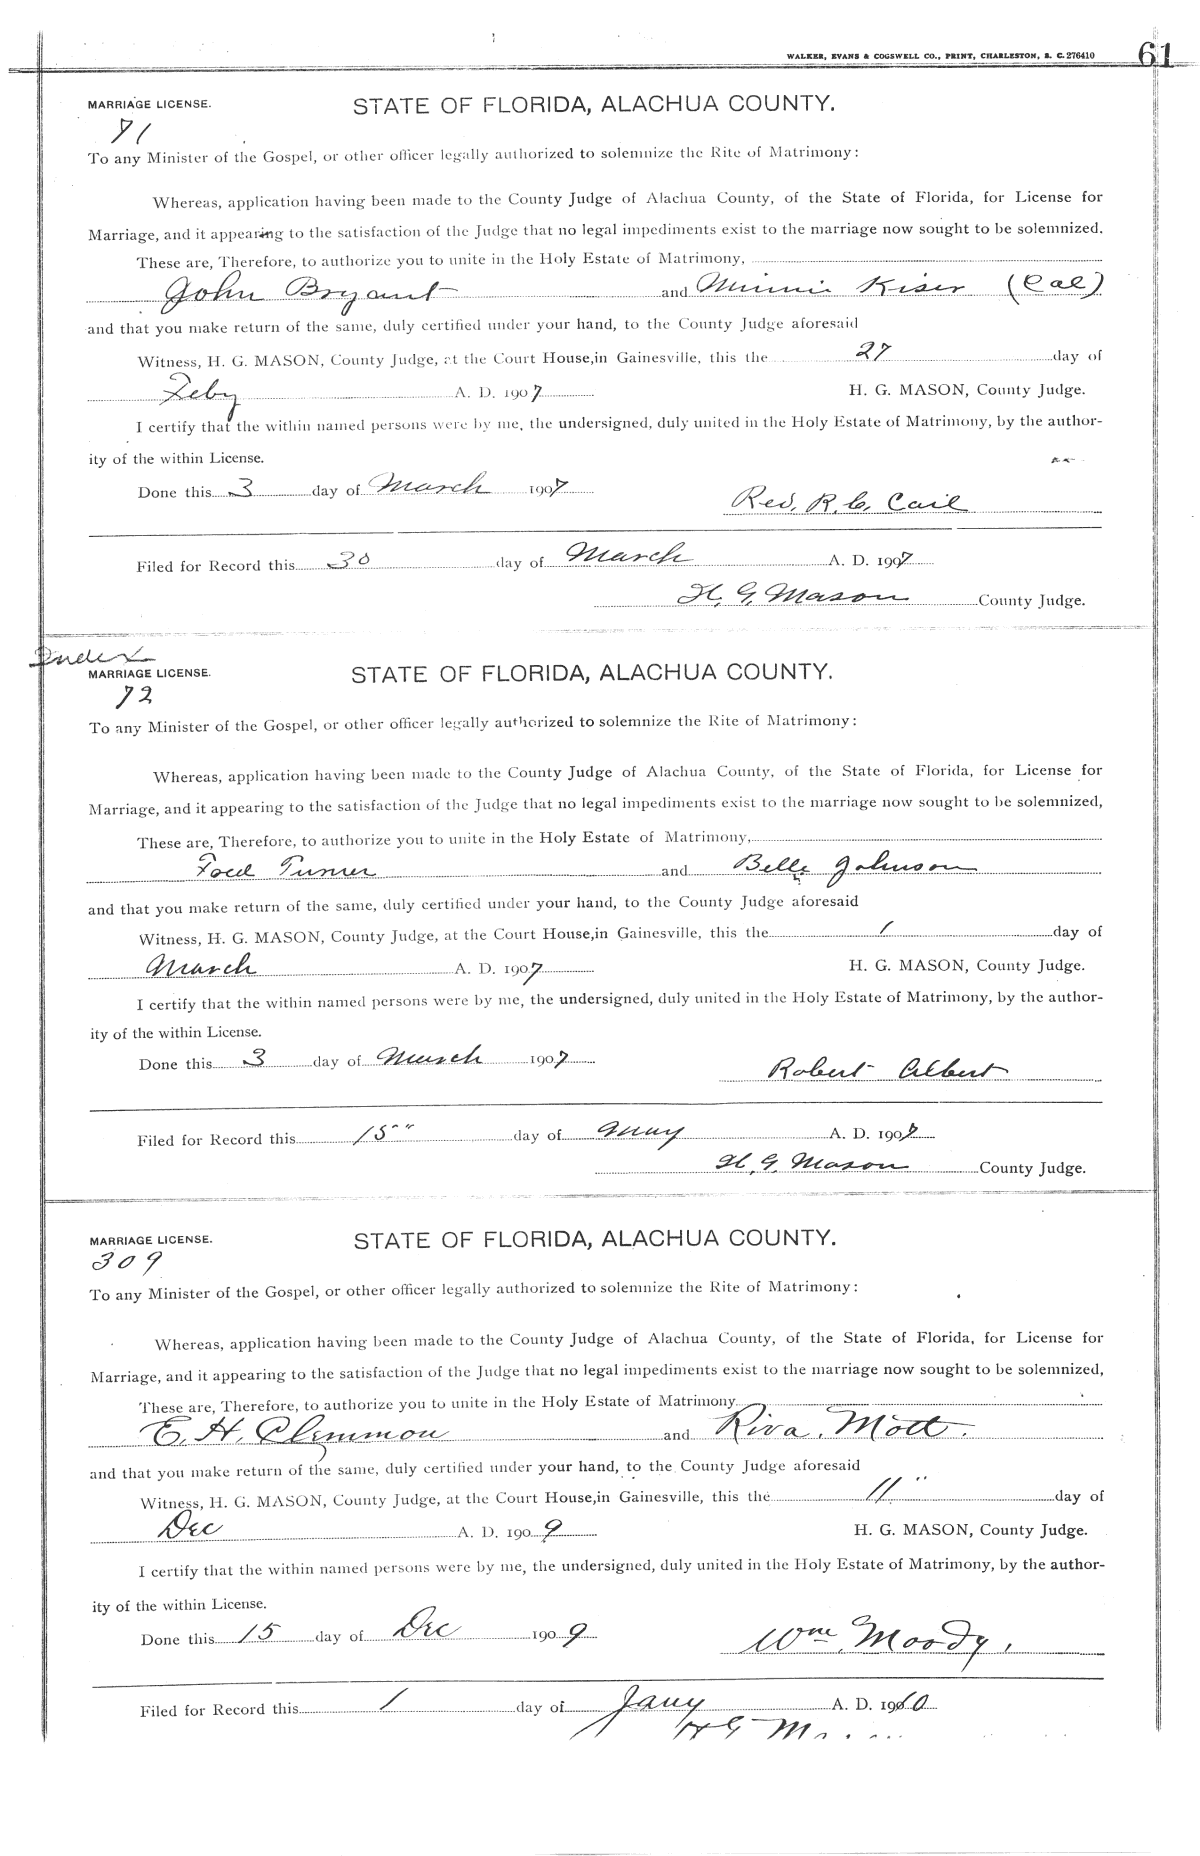 WALKER, EVANS & COGSWELL CO., PRINT, CHARLESTON, S. C. 276410 61
MARRIAGE LICENSE. STATE OF FLORIDA, ALACHUA COUNTY.
71
To any Minister of the Gospel, or other officer legally authorized to solemnize the Rite of Matrimony:
Whereas, application having been made to the County Judge of Alachua County, of the State of Florida, for License for
Marriage, and it appearing to the satisfaction of the Judge that no legal impediments exist to the marriage now sought to be solemnized.
These are, Therefore, to authorize you to unite in the Holy Estate of Matrimony,
John Bryant and Minnie Kiser (Col)
and that you make return of the same, duly certified under your hand, to the County Judge aforesaid
Witness, H. G. MASON, County Judge, at the Court House,in Gainesville, this the 27 day of
Feby A. D. 1907 H. G. MASON, County Judge.
I certify that the within named persons were by me, the undersigned, duly united in the Holy Estate of Matrimony, by the author-
ity of the within License.
Done this 3 day of March 1907
Rev. R. C. Cail
Filed for Record this 30 day of March A. D. 1907
H. G. Mason County Judge.
Index
MARRIAGE LICENSE. STATE OF FLORIDA, ALACHUA COUNTY.
72
To any Minister of the Gospel, or other officer legally authorized to solemnize the Rite of Matrimony:
Whereas, application having been made to the County Judge of Alachua County, of the State of Florida, for License for
Marriage, and it appearing to the satisfaction of the Judge that no legal impediments exist to the marriage now sought to be solemnized,
These are, Therefore, to authorize you to unite in the Holy Estate of Matrimony,
Turner and Belle Johnson
and that you make return of the same, duly certified under your hand, to the County Judge aforesaid
Witness, H. G. MASON, County Judge, at the Court House,in Gainesville, this the 1 day of
March A. D. 1907 H. G. MASON, County Judge.
I certify that the within named persons were by me, the undersigned, duly united in the Holy Estate of Matrimony, by the author-
ity of the within License.
Done this 3 day of March 1907
Robert Albert
Filed for Record this 15" day of May A. D. 1907
H. G. Mason County Judge.
MARRIAGE LICENSE. STATE OF FLORIDA, ALACHUA COUNTY.
309
To any Minister of the Gospel, or other officer legally authorized to solemnize the Rite of Matrimony:
Whereas, application having been made to the County Judge of Alachua County, of the State of Florida, for License for
Marriage, and it appearing to the satisfaction of the Judge that no legal impediments exist to the marriage now sought to be solemnized,
These are, Therefore, to authorize you to unite in the Holy Estate of Matrimony
E. H. Clemmon and Riva. Mott.
and that you make return of the same, duly certified under your hand, to the County Judge aforesaid
Witness, H. G. MASON, County Judge, at the Court House,in Gainesville, this the 11" day of
Dec A. D. 1909 H. G. MASON, County Judge.
I certify that the within named persons were by me, the undersigned, duly united in the Holy Estate of Matrimony, by the author-
ity of the within License.
Done this 15 day of Dec 1909
Wm Moody.
Filed for Record this 1 day of Jany A. D. 1910
H G